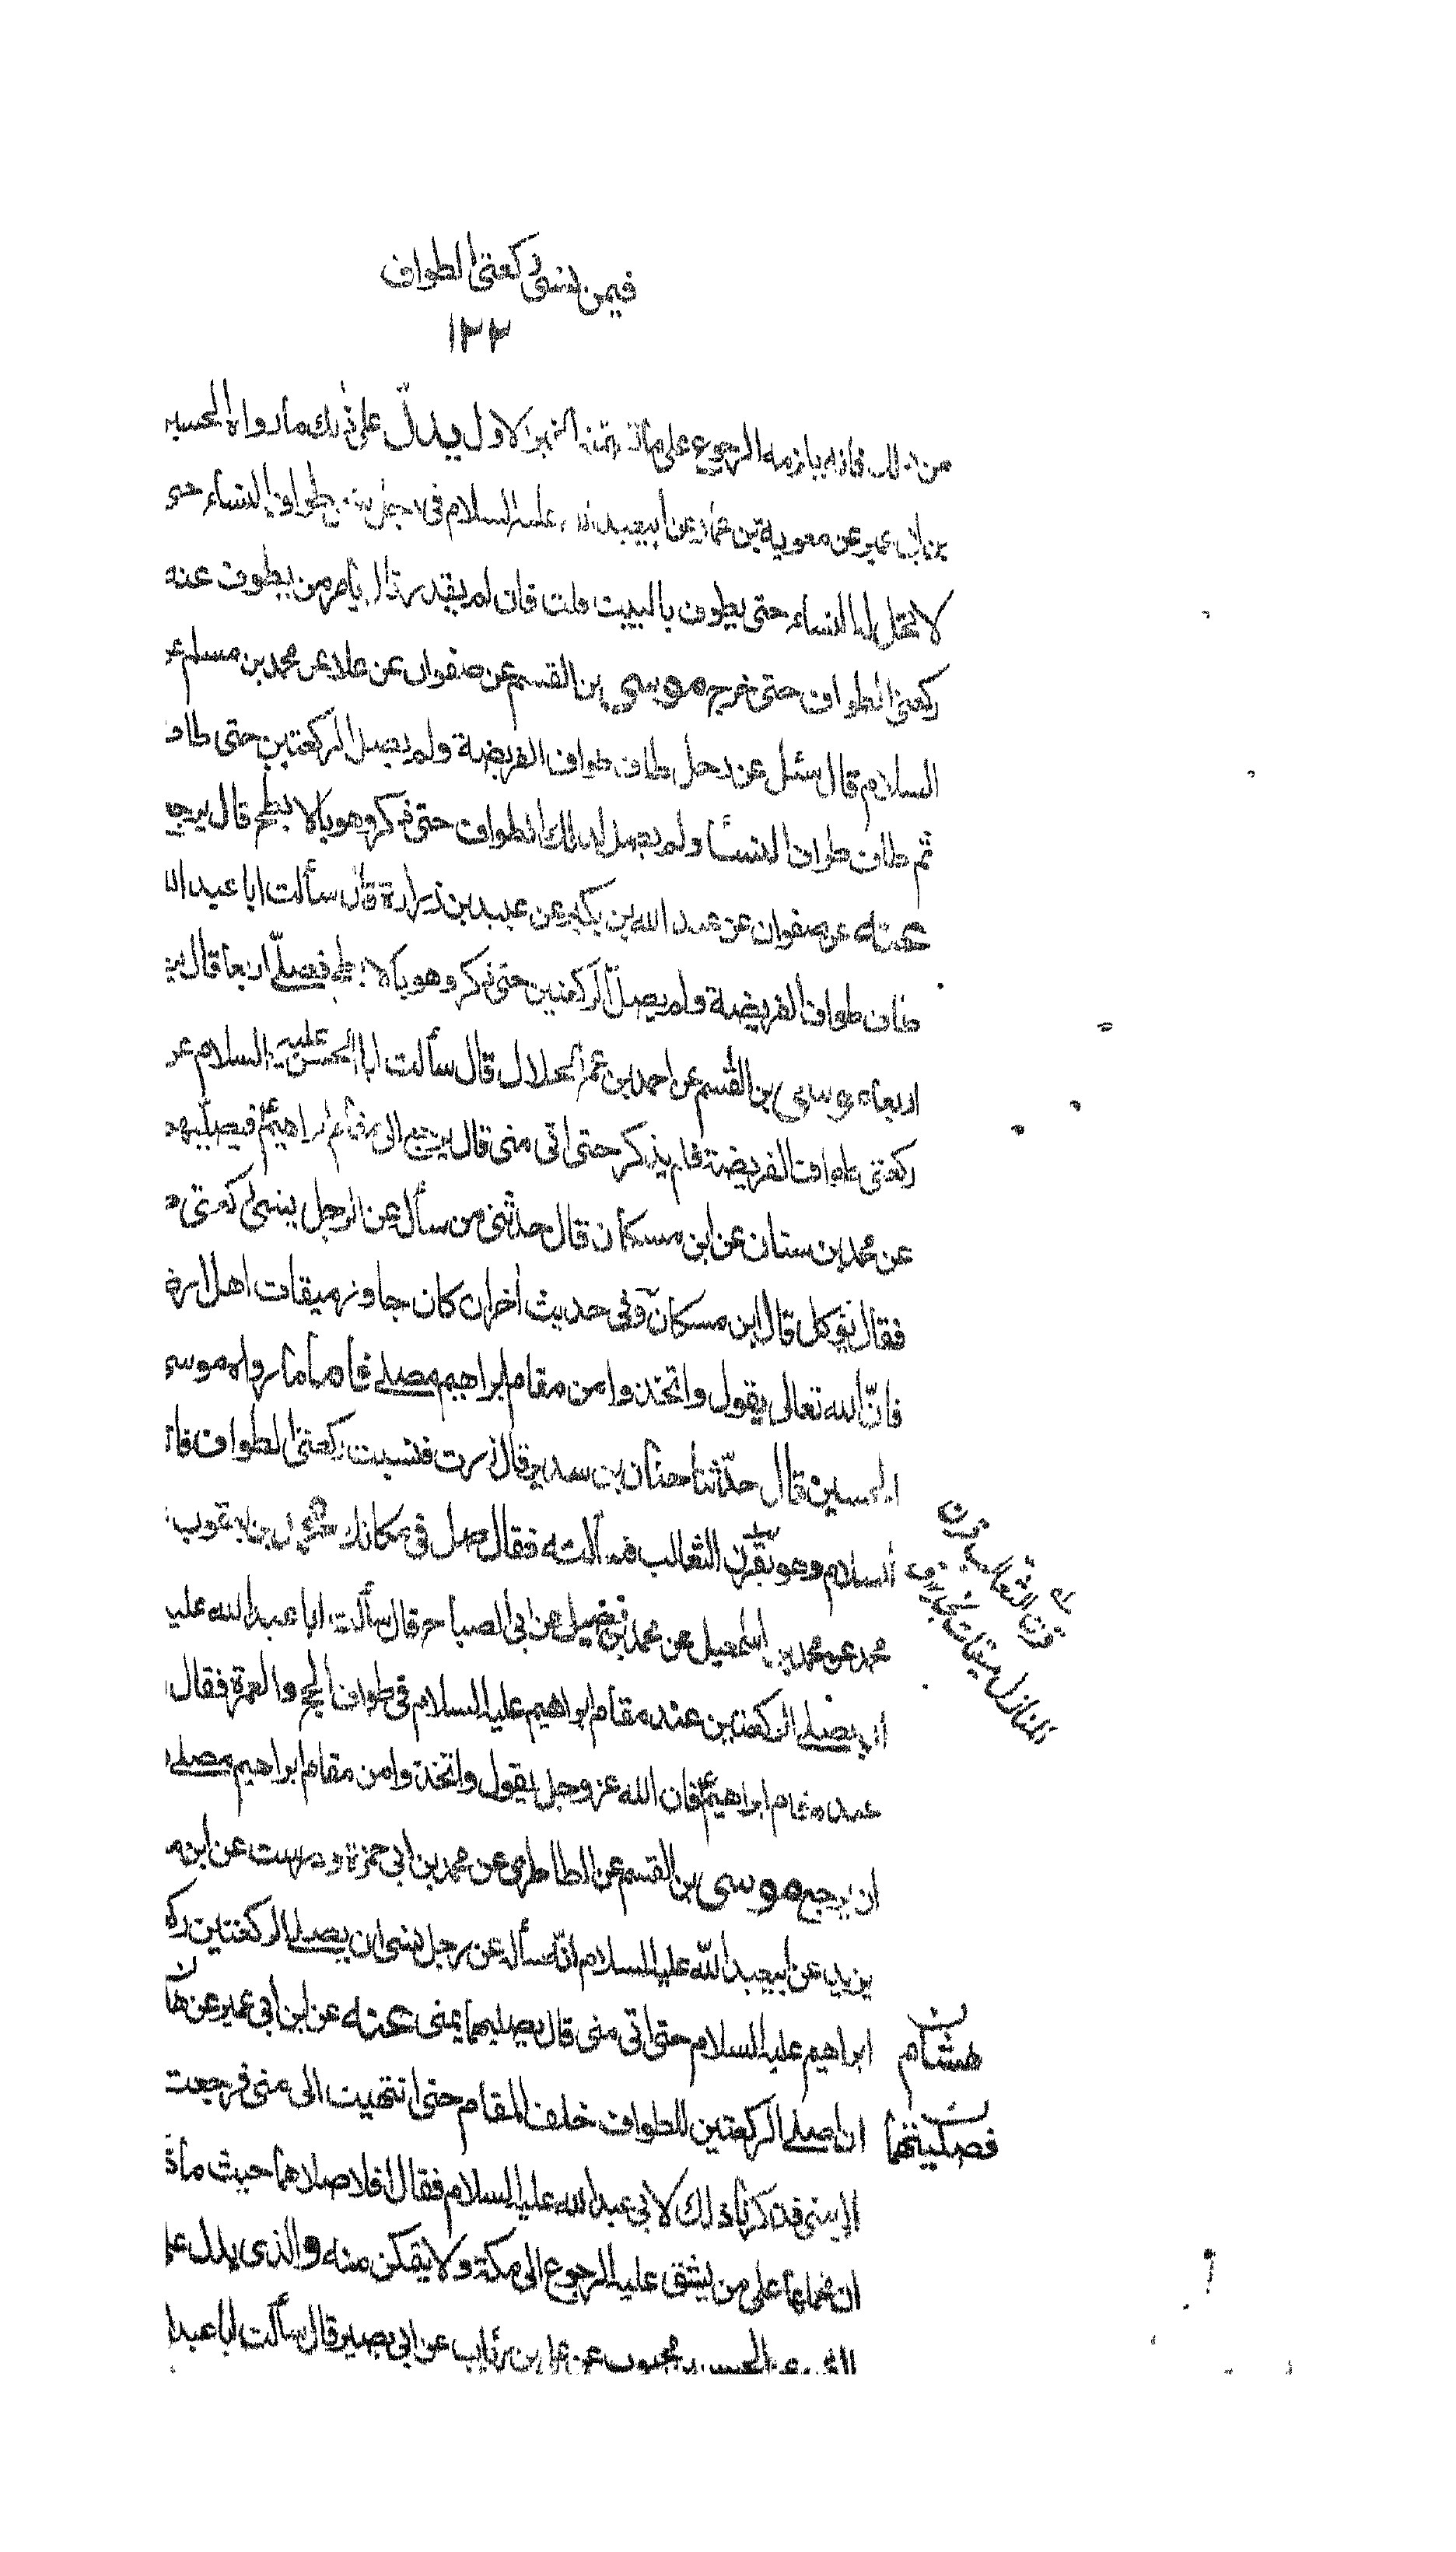 فيمن نسى ركعتى الطواف
١٢٢
من ذلك فانه يلزمه الرجوع على ما تضمنه الخبر الاول يدلّ على ذلك ما رواه الحسين
بن ابى عمير عن معوية بن عمار عن ابيعبدالله عليه السلام فى رجل نسى طواف النساء حتى
لا تحل له النساء حتى يطوف بالبيت قلت فان لم يقدر قال يأمر من يطوف عنه
ركعتى الطواف حتى خرج موسى بن القسم عن صفوان عن علاء عن محمد بن مسلم عن
السلام قال سئل عن رجل طاف طواف الفريضة ولم يصل الركعتين حتى طاف
ثم طاف طواف النساء ولم يصل لذلك الطواف حتى ذكر وهو بالابطح قال يرجع
عنه عن صفوان عن عبد الله بن بكير عن عبيد بن زرارة قال سألت ابا عبد الله
طاف طواف الفريضة ولم يصلّ الركعتين حتى ذكر وهو بالابطح فصلّى اربعا قال
اربعا موسى بن القسم عن احمد بن عمر الحلال قال سألت ابا الحسن عليه السلام عن
ركعتى طواف الفريضة فلم يذكر حتى اتى منى قال يرجع الى مقام ابراهيم فيصليهما
عن محمد بن سنان عن ابن مسكان قال حدثنى من سأل عن الرجل ينسى ركعتى
فقال يوكل قال ابن مسكان وفى حديث آخر ان كان جاوز ميقات اهل ارضه
فانّ الله تعالى يقول واتخذوا من مقام ابراهيم مصلى فاما ما رواه موسى
الحسين قال حدّثنا حنان بن سدير قال زرت فنسيت ركعتى الطواف فاتيت
السلام وهو بقرن الثعالب فسألته فقال صل فى مكانك محمد بن يعقوب
محمد عن محمد بن اسمعيل عن محمد بن فضيل عن ابى الصباح قال سألت ابا عبد الله عليه
ان يصلى الركعتين عند مقام ابراهيم عليه السلام فى طواف الحج والعمرة فقال
عند مقام ابراهيم فان الله عز وجل يقول واتخذوا من مقام ابراهيم مصلى
ان يرجع موسى بن القسم عن الطاطرى عن محمد بن ابى حمزة ودرست عن ابن
يزيد عن ابيعبد الله عليه السلام انه سأله عن رجل نسى ان يصلى الركعتين
ابراهيم عليه السلام حتى اتى منى قال يصليهما بمنى عنه عن ابن ابى عمير عن
ان اصلى الركعتين للطواف خلف المقام حتى انتهيت الى منى فرجعت
فذكرنا ذلك لابى عبد الله عليه السلام فقال افلا صلاهما حيث ما
على من يشق عليه الرجوع الى مكة ولا يتمكن منه والذى يدل على
الحسن بن محبوب عن على بن رئاب عن ابى بصير قال سألت ابا عبد
قرن الثعالب
قرن المنازل ميقات نجد
هشام
فصليتهما